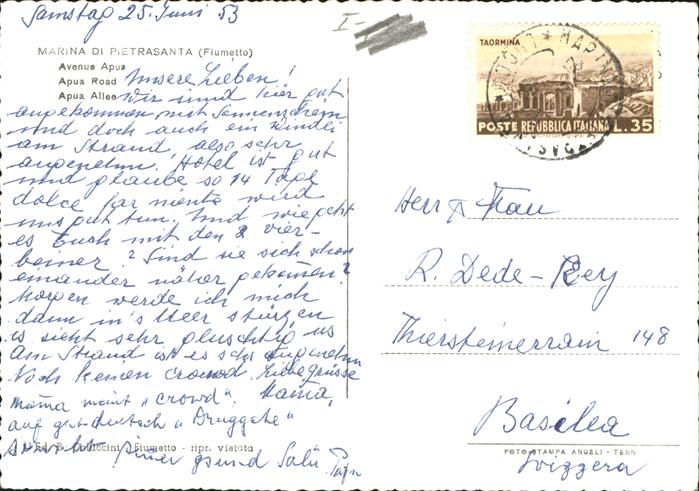 Samstag 25. Juni 53
I-
MARINA DI PIETRASANTA (Fiumetto)
Avenue Apua
Apua Road
Apua Allee
Unsere Lieben!
Wir sind hier gut
angekommen mit Sonnenschein
und doch auch ein Windli
am Strand, also sehr
angenehm. Hotel ist gut
und glaube so 14 Tage
dolce far niente wird
uns gut tun. Und wie geht
es Euch mit den 2 vier-
beiner? Sind sie sich schon
einander näher gekommen?
Morgen werde ich mich
dann in's Meer stürzen
es sieht sehr gluschtig us
Am Strand ist es sehr angenehm
Noch keinen crowd. Liebe Grüsse
Mama,
Mama meint "crowd"
auf gut deutsch "Druggete"
gsund Salü Papa
Fiumetto - ripr. vietata
TAORMINA
POSTE REPUBBLICA ITALIANA L.35
Herr & Frau
R. Dede-Rey
Thiersteinerrain 148
Basilea
FOTO STAMPA ANGELI - TERNI
Svizzera